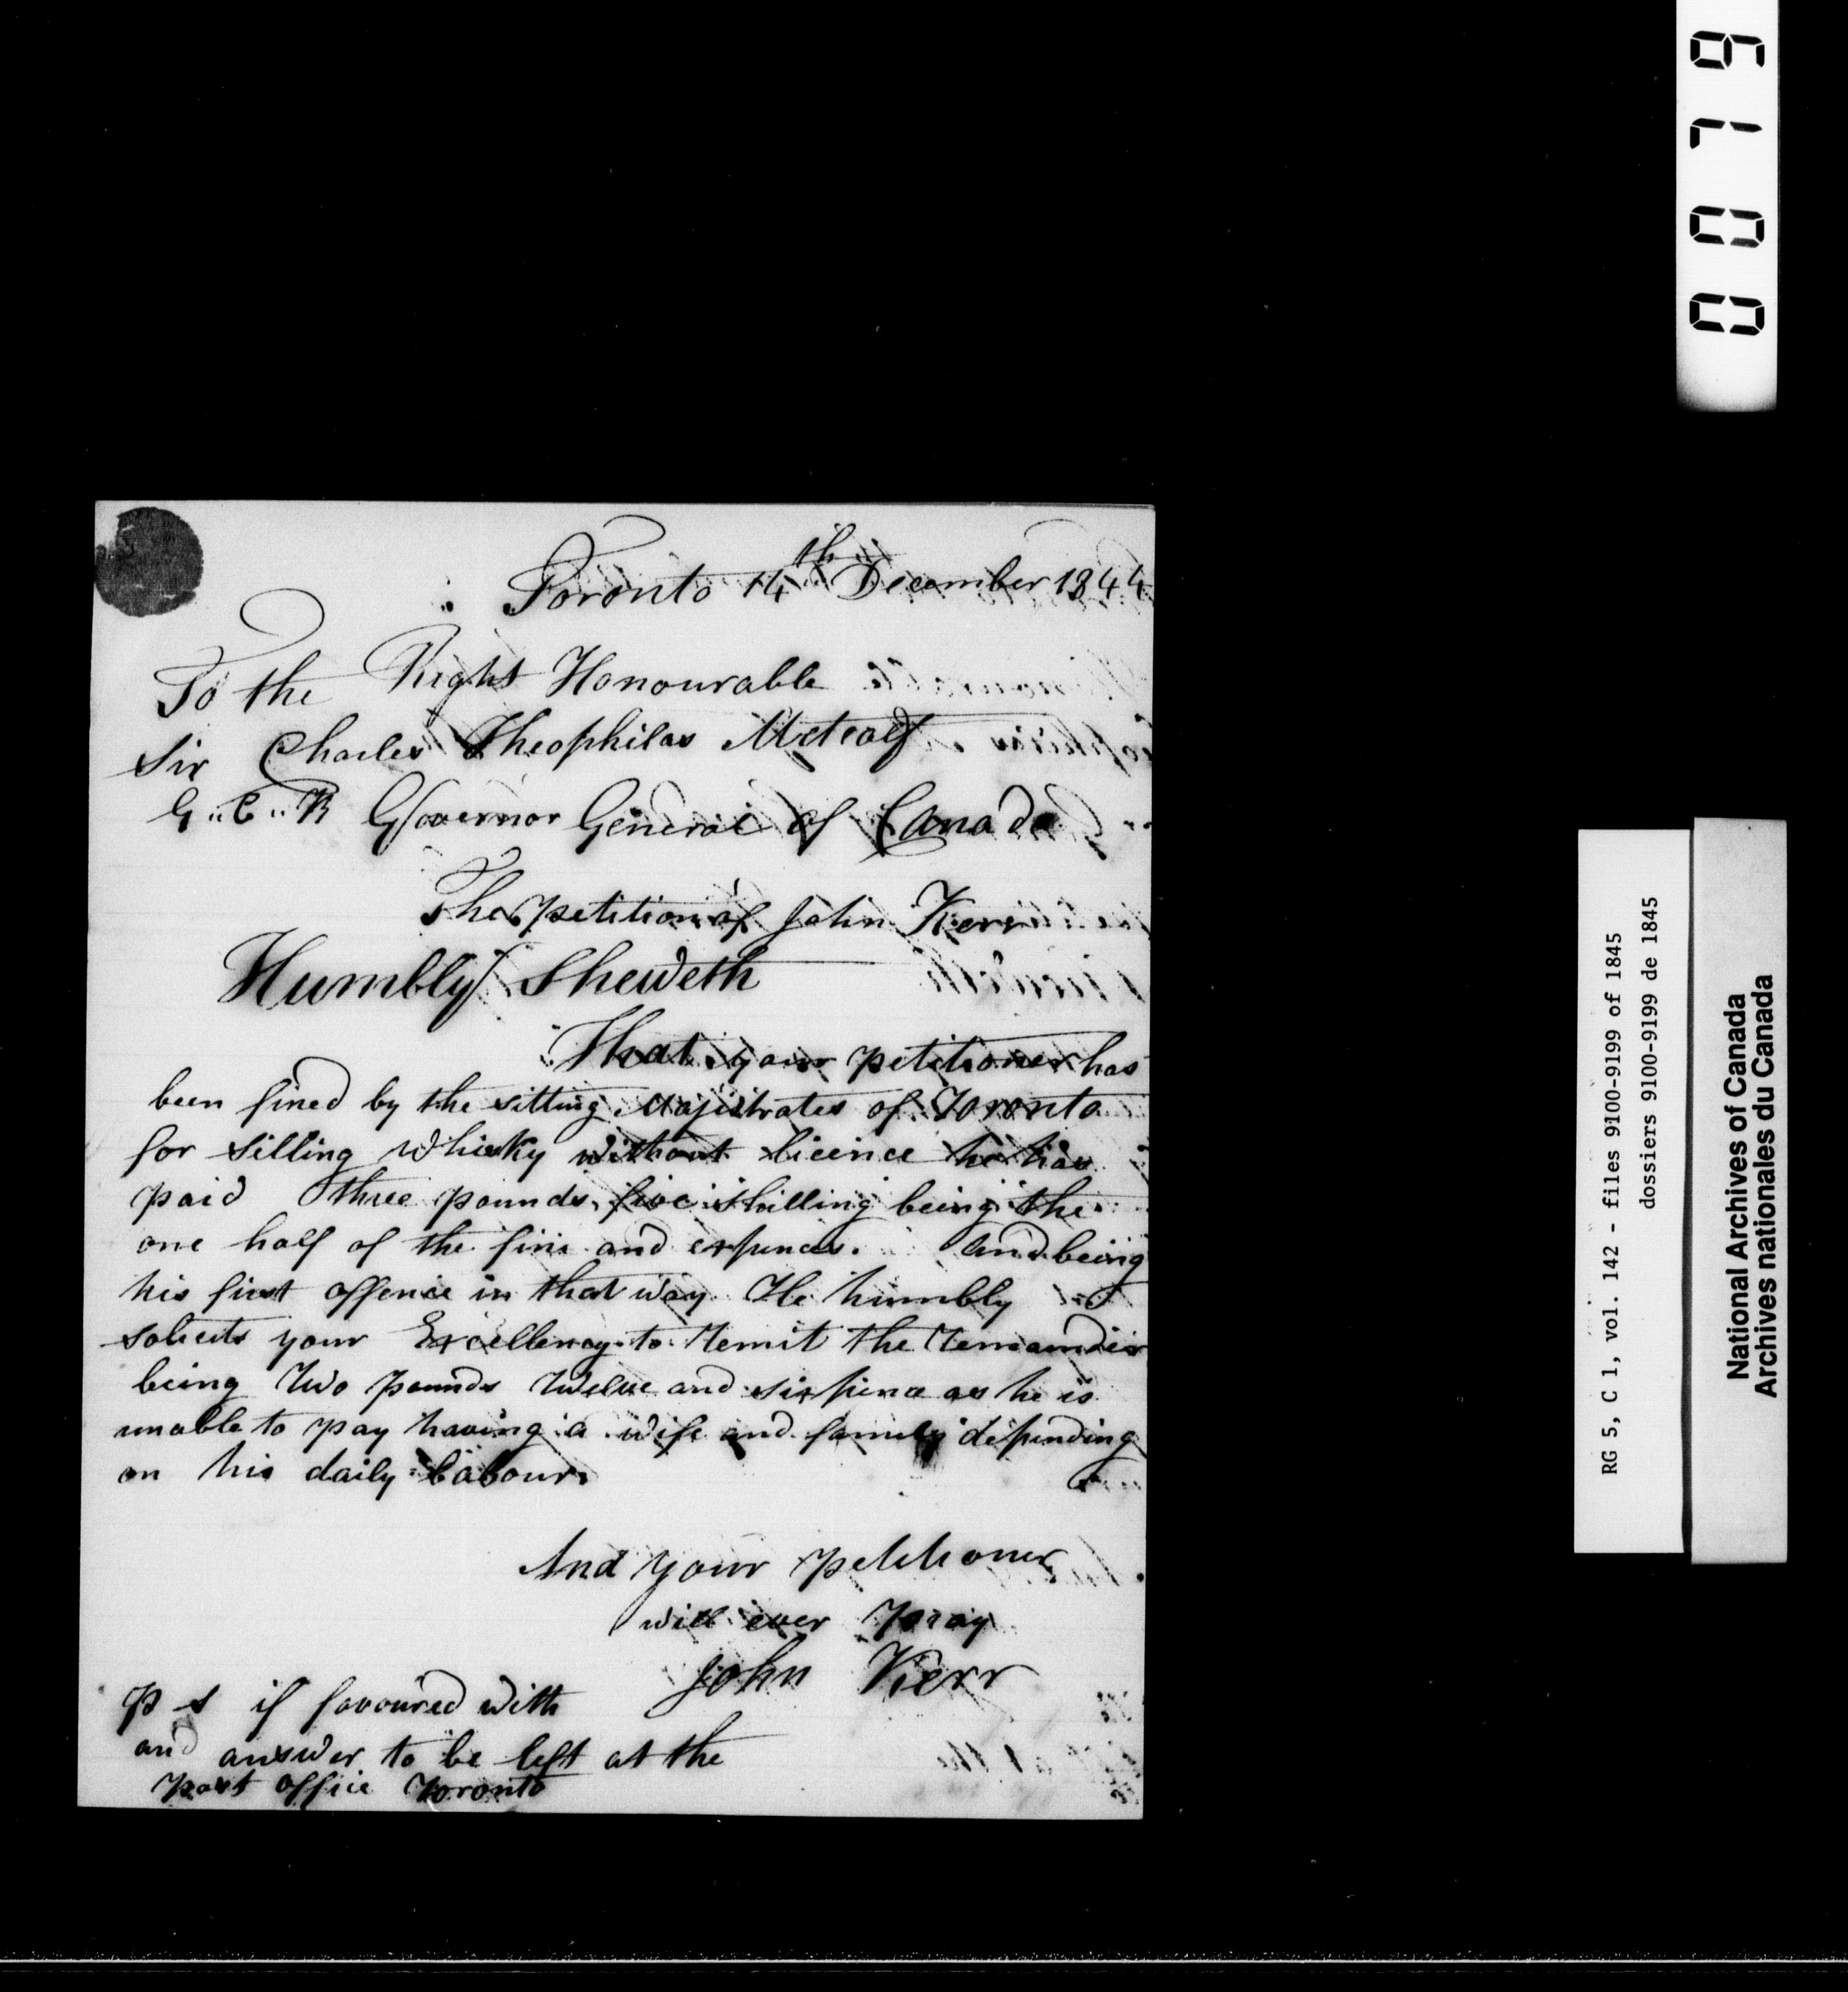 Toronto 14th December 1844
To the Right Honourable
Sir Charles Theophilas Metcalf
G..C..B Governor General of Canada
The petition of John Kerr
Humbly Sheweth
That your petitioner has
been fined by the sitting Majistrates of Toronto
for Silling Whisky without licence he has
paid three pounds five shilling being the
one half of the fine and expences. And being
his first offence in that way He humbly
solicits your Excellency to remit the remainder
being Two pounds Twelve and six pence as he is
unable to pay having a wife and family depending
on his daily labour
And your petitioner
will ever pray
John Kerr
P S if favoured with
and answer to be left at the
post office Toronto
0079
RG 5, C 1, vol. 142 - files 9100-9199 of 1845
dossiers 9100-9199 de 1845
National Archives of Canada
Archives nationales du Canada